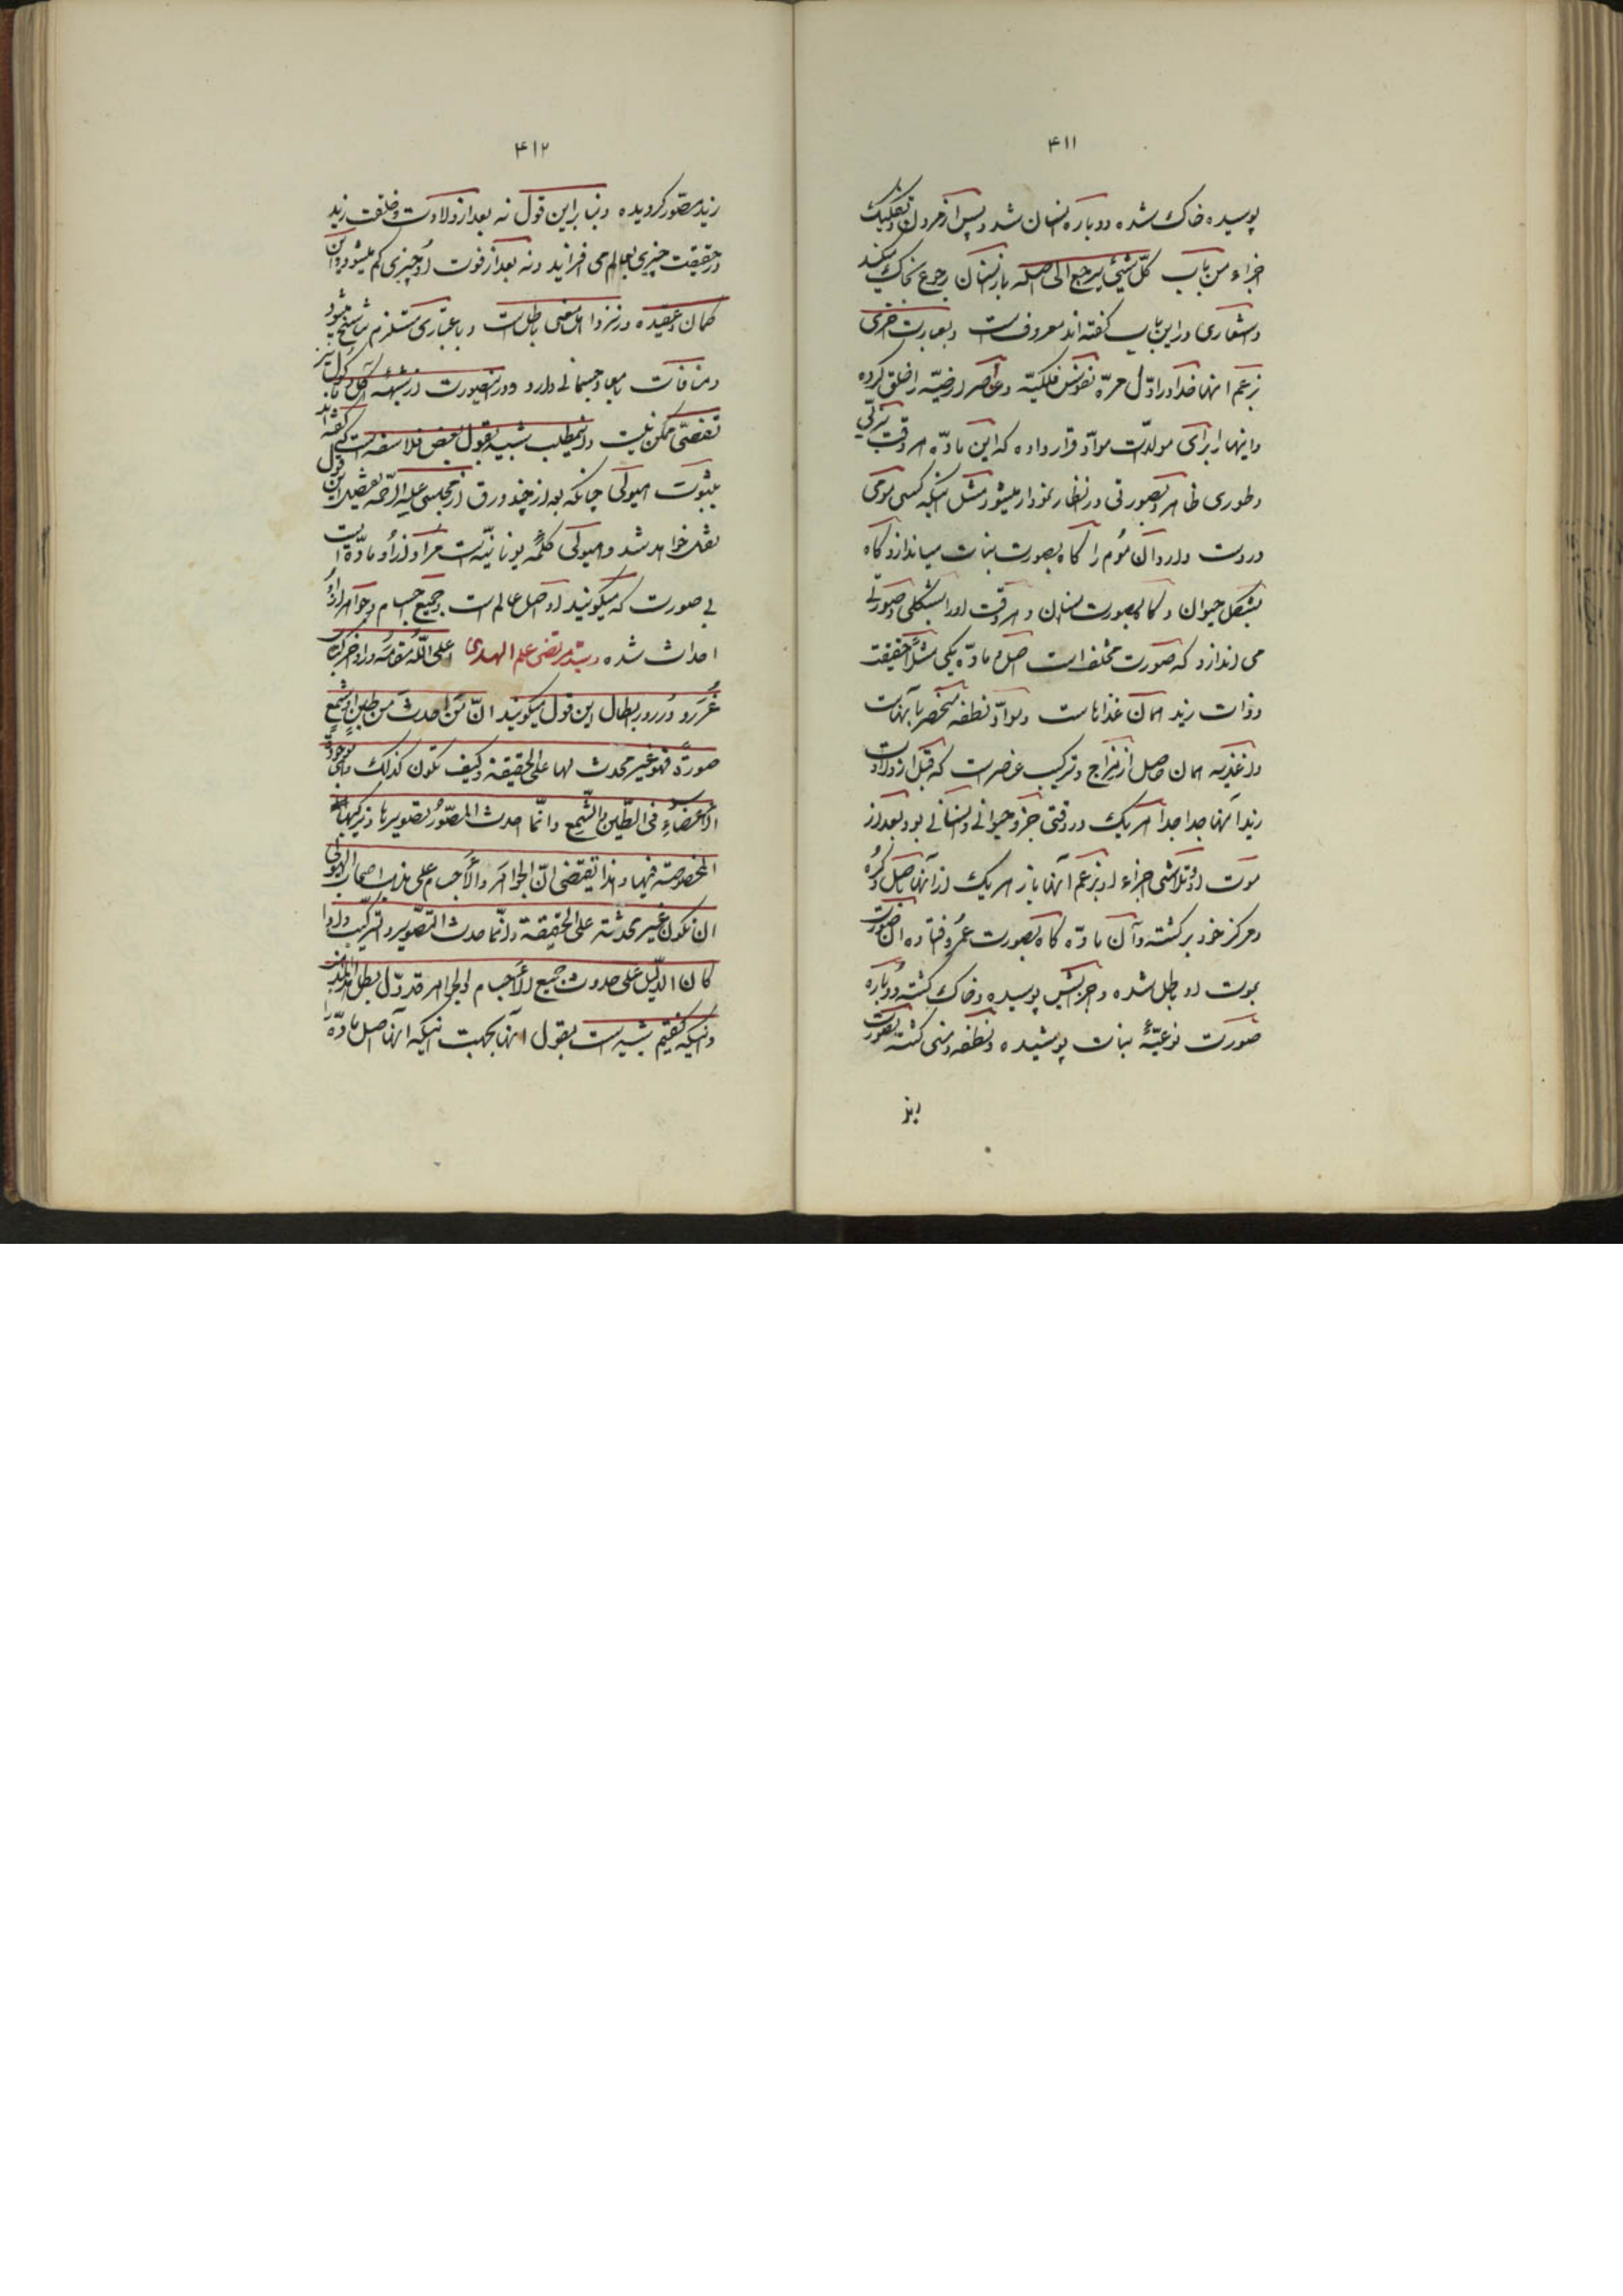 ۴۱۱
پوسیده خاک شده و دوباره انسان شد و پس از مردن و تفکیک
اجزاء من باب کلّ شیئی یرجع الی اصله باز انسان رجوع بخاک میکند
و اشعاری در این باب گفته‌اند معروف است و بعبارت اخری
بزعم آنها خدا در اوّل مرّه نفوس فلکیّه و عناصر ارضیّه را خلق کرده
و اینها را برای مولدات موادّ قرار داده که این مادّه هر وقت بترکیبی
و طوری ظاهر و بصورتی در انظار نمودار میشود مثل اینکه کسی مومی
در دست دارد و آن موم را گاه بصورت نبات میاندازد و گاه
بشکل حیوان و گاه بصورت انسان و هر وقت او را بشکلی و صورتی
می اندازد که صورت مختلف است و اصل مادّه یکی مثلاً حقیقت
و ذات زید همان غذاهاست و موادّ نطفه منحصر بآنهاست
و اغذیه همان حاصل از امتزاج و ترکیب عناصر است که قبل از ولادت
زید آنها جدا جدا هر یک در وقتی جزو حیوانی و انسانی بود و بعد از
موت او و تلاشی اجزاء او بزعم آنها باز هر یک از آنها باصل و کره
و مرکز خود برگشته و آن مادّه گاه بصورت عمرو فتاده آن صورت
بموت او باطل شده و اجزایش پوسیده و خاک گشته دوباره
صورت نوعیّهٔ نبات پوشیده و نطفه و منی گشته بصورت
زید
۴۱۲
زید مصوّر گردیده و بنا بر این قول نه بعد از ولادت و خلقت زید
در حقیقت چیزی بعالم می افزاید و نه بعد از فوت او چیزی کم میشود و این
گمان و عقیده در نزد اهل معنی باطل است و باعتباری مستلزم تناسخ میشود
و منافات با معاد جسمانی دارد و در اینصورت از شبههٔ آکل و مأکول نیز
تفصّی ممکن نیست و اینمطلب شبیه بقول بعض فلاسفه است که گفته‌اند
بثبوت هیولی چنانکه بعد از چند ورق از مجلسی علیه الرّحمه تفصیل این قول
نقل خواهد شد و هیولی کلمهٔ یونانیّه است مراد از او مادّهٔ است
بی صورت که میگویند او اصل عالم است و جمیع اجسام و جواهر از او
احداث شده و سیّد مرتضی علم الهدی اعلی اللّه مقامه در اواخر کتاب
غرر و درر در ابطال این قول میگویند انّ من احدث من طین او شمع
صورةً فهو غیر محدث لها علی الحقیقة و کیف تکون کذلک و هی موجودة
الأعضاء فی الطّین و الشّمع و انّما احدث المصوّر تصویرها و ترکیبها
المخصوصة فیها و هذا یقتضی انّ الجواهر و الأجسام علی مذهب اصحاب الهیولی
ان تکون غیر محدثة علی الحقیقة و انّما حدث التّصویر و الترکیب و اذا
کان الدّلیل علی حدوث جمیع الأجسام و الجواهر قد دلّ بطل
و اینکه گفتیم شبیه است بقول آنها بجهت اینکه آنها اصل مادّه را